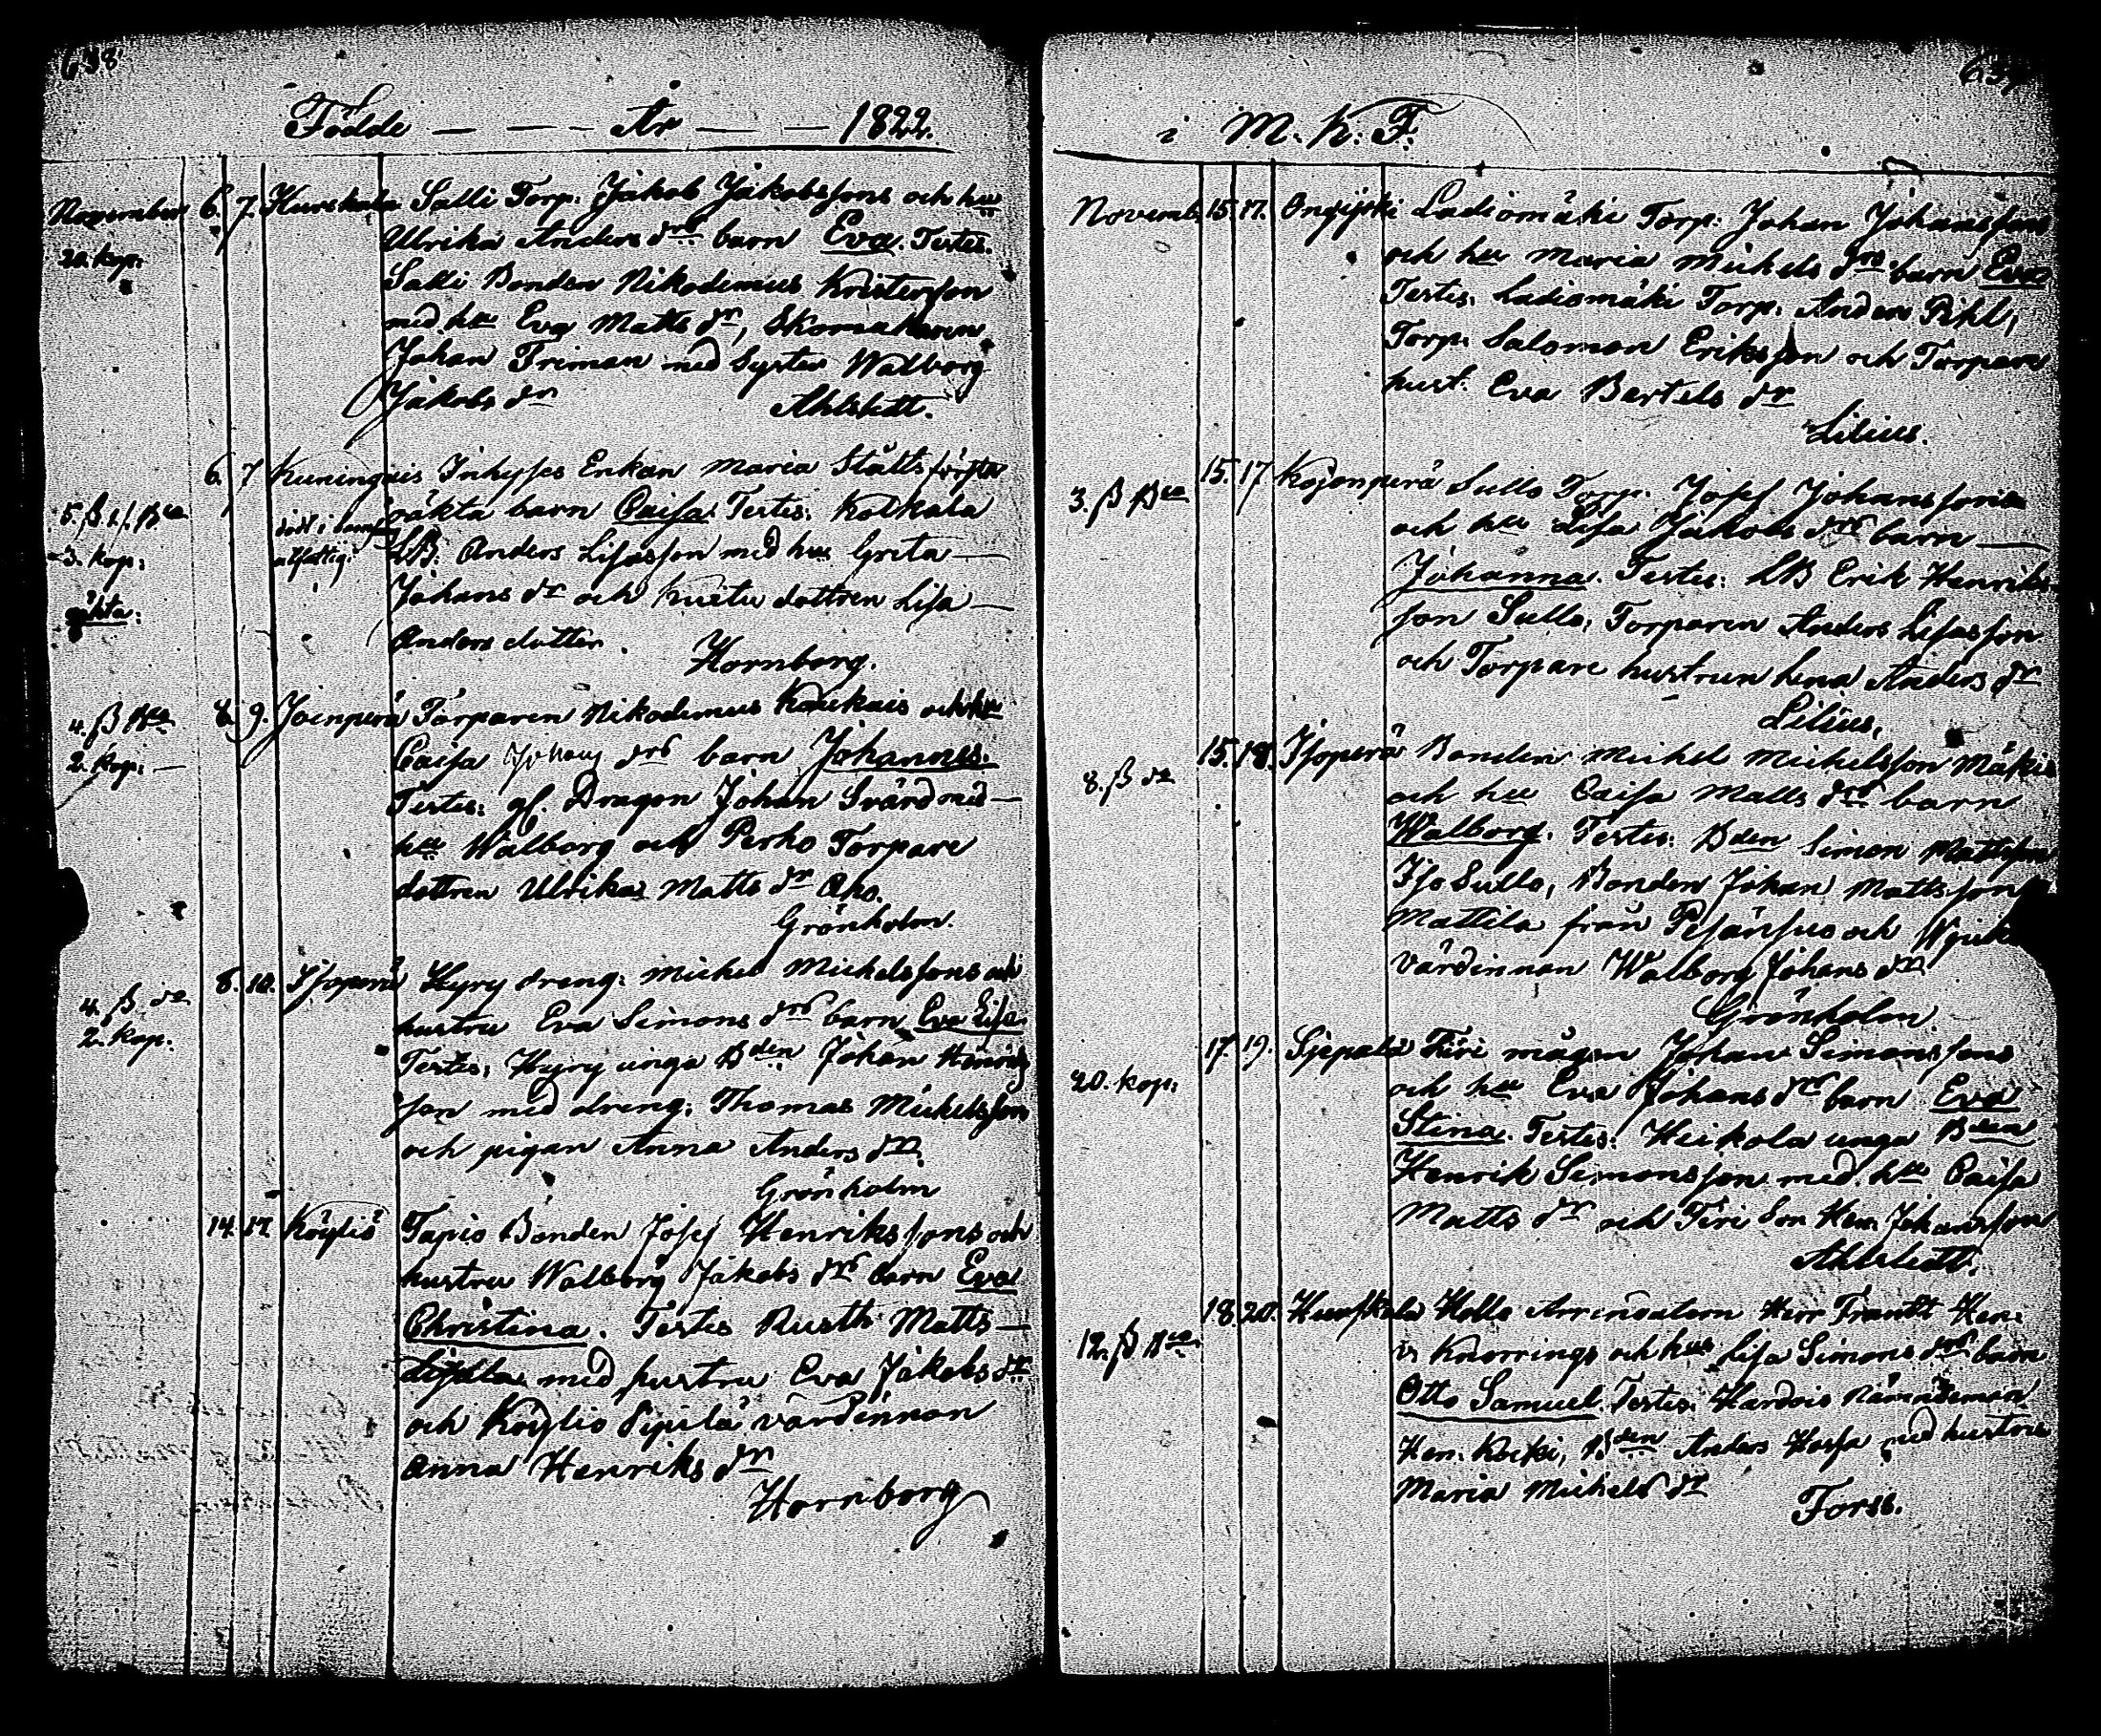 638
Födde — — — År — — 1822.
November 6. 7. Salli Torp. Jakob Jakobssons och hu
20. kop. Ulrika Anders drs barn Eva. Testes.
Salli Bonden Nikodemus Kristersson
med hu Eva Matts dr, Skomakaren
Johan Friman med Syster Walborg
Jakobs dr Ahlstedt.
6. 7 Kuningais Inhyses Enkan Maria
oäkta barn Caisa. Testes. Kolkala
3. kop: Anders Lisasson med hu Greta —
oäkta: Johans dr och dottren Lisa —
Anders dotter. Hornborg.
4. ß Bco 8. 9. Joenperä Torparen Nikodemus Kaukais och hu
2. kop: — Caisa Johans drs barn Johannes.
Testes: gf. Dragon Johan Svärd med —
hu Walborg och Perho Torpare
dottren Ulrika Matts dr Aho.
Grönholm.
8. 10. Isoperä Hyry dreng: Michel Michelssons och
4. ß do hustru Eva Simons drs barn Eva Lisa
2. kop. Testes, Hyry unga Bden Johan
son med dreng: Thomas Michelsson
och pigan Anna Anders dr.
Grönholm
14. 17. Köyliö Tapio Bonden Josef Henrikssons och
hustru Walborg Jakobs drs barn Eva
Christina. Testes Rusth Matts —
med hustru Eva Jakobs dr
och Köyliö värdinnan
Anna Henriks dr
Hornborg
i M. K. F.
Novemb. 15. 17. Ladiomäki Torp: Johan Johansson
och hu Maria Michels drs barn Eva
Testes. Ladiomäki Torp. Anders Pihl,
Torp. Salomon Eriksson och Torpare
hust. Eva Bertels dr
Lilius.
15. 17 Kojonperä Sullo Torp. Josef Johanssons
3. ß Bco och hu Lisa Jakobs drs barn —
Johanna. Testes: LB Erik Henriks
son Sullo, Torparen Anders Lisasson
och Torpare hustrun Lena Anders dr
Lilius,
15. 18. Isoperä Bonden Michel Michelsson Mäkis
8. ß do och hu Caisa Matts drs barn
Walborg. Testes: Bden Simon Mattsson
Iso Sullo, Bonden Johan Mattsson
Mattila från och
Värdinnan Walborg Johans dr
Grönholm
17. 19. Sjepälä Tiri mågen Johan Simonssons
20. kop: och hu Eva Johans drs barn Eva
Stina. Testes: Heikola unga Bden
Henrik Simonsson med hu Caisa
Matts dr och Tiri Son Hen: Johansson
Ahlstedt.
18. 20. Hollo Arrendatorn Herr Hen:
12. ß Bco v. Knorrings och hus Lisa Simons drs barn
Otto Samuel. Testes: Nämndeman
Hen: Bden Anders med hustru
Maria Michels dr Forss.